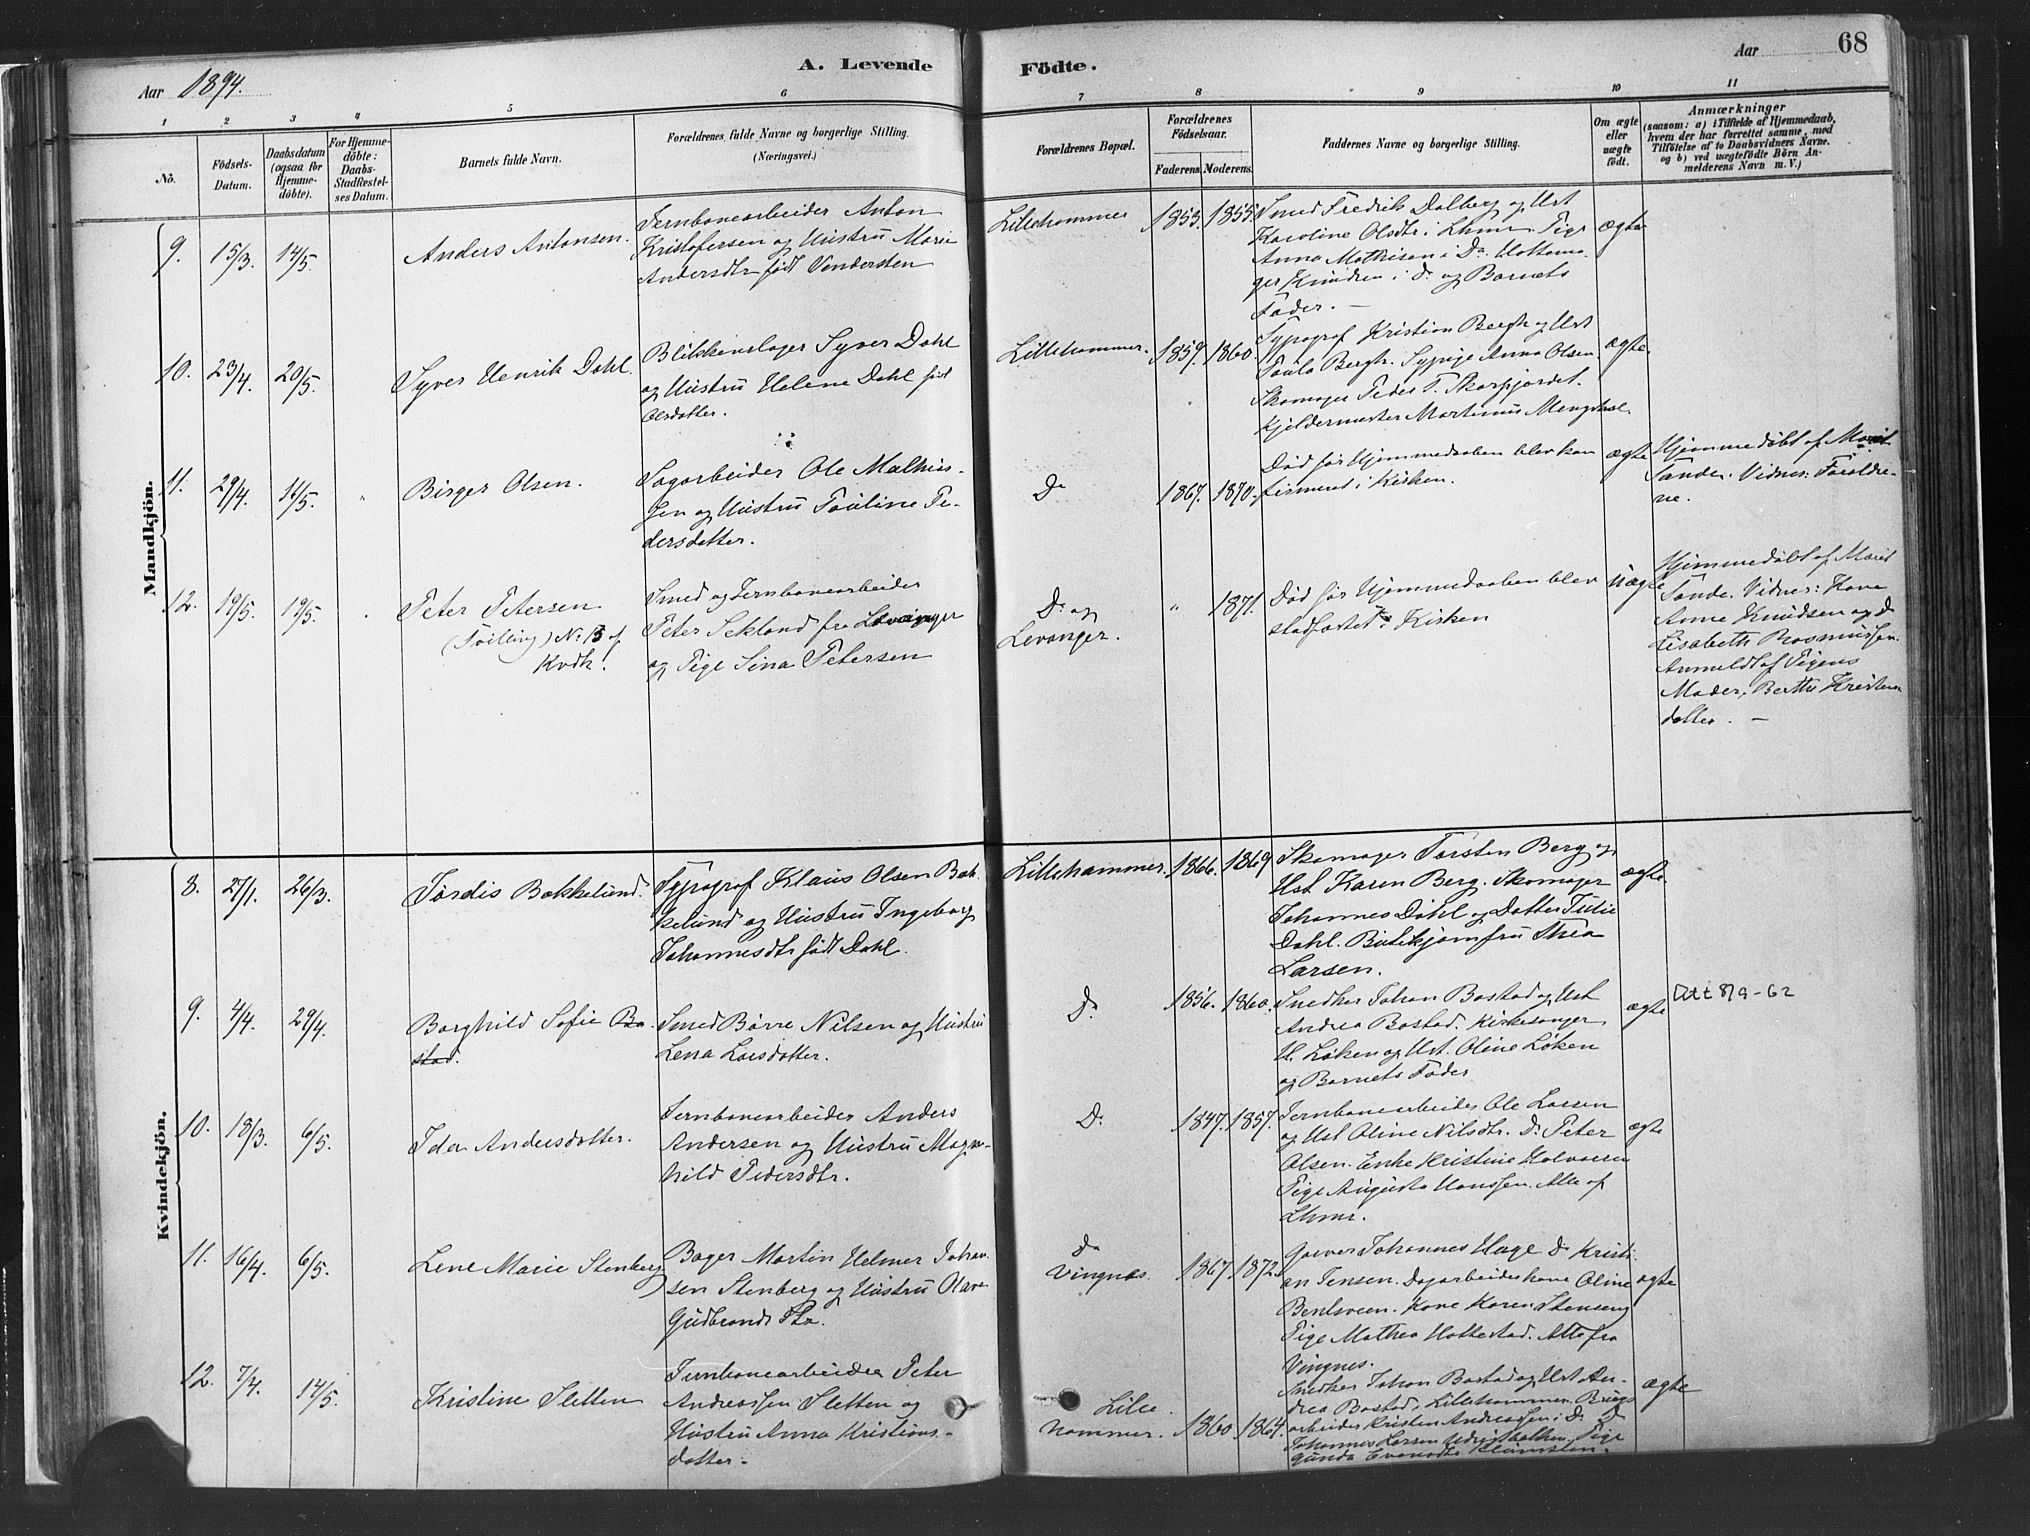 Aar 1894.
A. Levende
Födte.
Aar
68
1
2
3
4
5
6
7
8
9
10
11
No.
Födsels-
Datum.
Daabsdatum
(ogsaa for
Hjemme-
döbte).
For Hjemme-
döbte:
Daabs-
Stadfæstel-
ses Datum.
Barnets fulde Navn.
Forældrenes fulde Navne og borgerlige Stilling.
(Næringsvei.)
Forældrenes Bopæl.
Forældrenes
Födselsaar.
Faderens.
Moderens.
Faddernes Navne og borgerlige Stilling.
Om ægte
eller
uægte
födt.
Anmærkninger
(saasom: a) i Tilfælde af Hjemmedaab,
hvem der har forrettet samme, med
Tilföielse af to Daabsvidners Navne,
og b) ved uægtefödte Börn An-
melderens Navn m. V.)
Mandkjön.
9. 15/3. 14/5. Anders Antonsen.
Jernbanearbeider Anton
Kristofersen og Hustru Marie
Andersdtr født Vendersten
Lillehammer 1853. 1855.
Smed Fredrik Dalberg og Hst
Karoline Olsdtr. i Lhmr. Pige
Anna Mathisen i Do Hattema-
ger Knudsen i do og Barnets
Fader. —
ægte
10. 23/4. 20/5. Syver Henrik Dahl.
Blikkenslager Syver Dahl
og Hustru Helene Dahl født
Olsdatter.
Lillehammer. 1859. 1860.
Typograf Kristian Bergh og Hst
Paula Bergh. Sypige Anna Olsen
Skomager Peder T. Skarpjordet.
Kjeldermester Martinus Mengshoel.
ægte.
11. 29/4. 14/5. " Birger Olsen.
Sagarbeider Ole Mathis-
sen og Hustru Pauline Pe-
dersdatter.
Do 1867. 1870.
Død før Hjemmedaaben blev kon
firmeret i Kirken.
ægte
Hjemmedøbt af Marit
Sande. Vidner: Forældre-
ne.
12. 19/5. 19/5. " Peter Petersen
(Tvilling) No 13 af
Kvdk.
Smed og Jernbanearbeider
Peter Sekland fra Levanger
og Pige Sina Petersen
Do og
Levanger.
" 1871.
Død før Hjemmedaaben blev
stadfæstet i Kirken
uægte
Hjemmedøbt af Marit
Sande. Vidner: Kone
Anne Knudsen og Do
Lisabeth Rasmussen.
Anmeldt af Pigens
Moder, Berthe Kristens
datter. —
Kvindekjön.
8. 27/1. 26/3. Jordis Bakkelund.
Typograf Klaus Olsen Bak-
kelund og Hustru Ingeborg
Johannesdtr født Dahl.
Lillehammer. 1866. 1869
Skomager Torsten Berg og
Hst Karen Berg. Skomager
Johannes Dahl og Datter Julie
Dahl. Butikjomfru Thea
Larsen.
ægte.
9. 4/4. 29/4. Borghild Sofie Ba-
stad.
Smed Børre Nilsen og Hustru
Lena Larsdatter.
Do 1856. 1860.
Snedker Johan Bastad og Hst
Andrea Bastad. Kirkesanger
H. Løken og Hst. Oline Løken
og Barnets Fader
ægte
Død 8/9-62
10. 18/3. 6/5. Ida Andersdatter.
Jernbanearbeider Anders
Andersen og Hustru Magn-
hild Pedersdtr.
Do 1847. 1857.
Jernbanearbeider Ole Larsen
og Hst Oline Nilsdtr. Do Peter
Olsen. Enke Kristine Halvorsen
Pige Augusta Hanssen. Alle af
Lhmr.
ægte
11. 16/4. 6/5. Lene Marie Stenberg
Bager Martin Helmer Johan-
sen Stenberg og Hustru Olave
Gudbrandsdtr.
Do
Vingnæs. 1867. 1872.
Garver Johannes Hage Do Kristi-
an Jensen. Dagarbeiderkone Oline
Bentsveen. Kone Karen Stenseng
Pige Mathea Hattestad. Alle fra
Vingnes.
ægte
12. 7/4. 14/5. Kristine Sletten
Jernbanearbeider Peter
Andreassen Sletten og
Hustru Anna Kristians-
datter.
Lille-
hammer. 1860 1864.
Snedker Johan Bastad og Hst An-
drea Bastad, Lillehammer. Brugs
arbeider Kristen Andreassen i Do Do
Johannes Larsen Pige
ægte